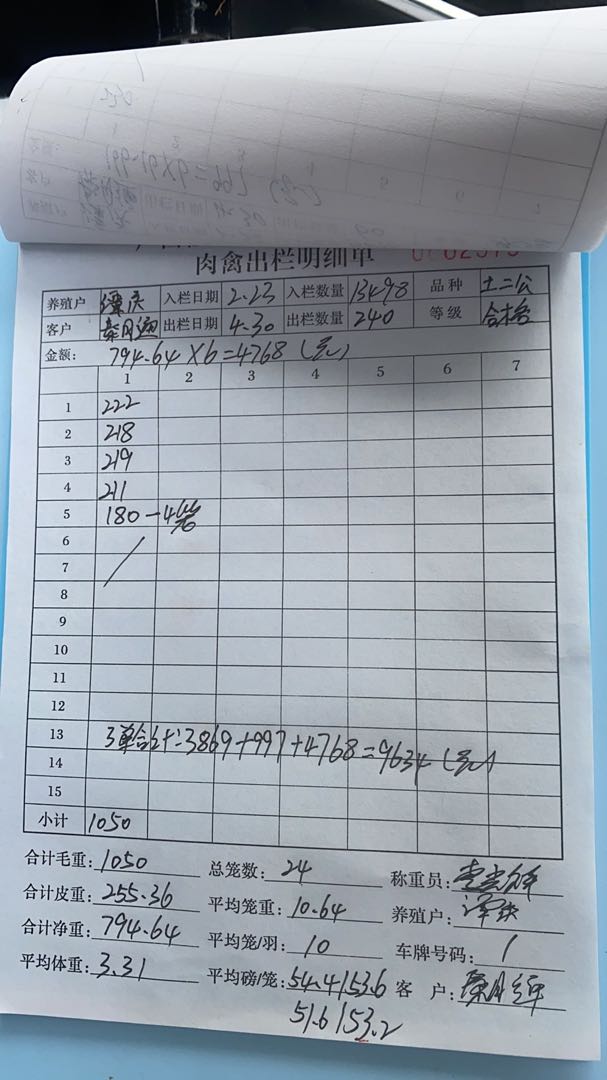 肉禽出栏明细单
养殖户 谭庆 入栏日期 2.23 入栏数量 13498 品种 土二公
客户 出栏日期 4.30 出栏数量 240 等级 合格
金额: 794.64×6=4768(元)
1 2 3 4 5 6 7
1 222
2 218
3 219
4 211
5 180-4笼
6
7
8
9
10
11
12
13 3单合计:3869+997+4768=9634(元)
14
15
小计 1050
合计毛重: 1050 总笼数: 24 称重员:
合计皮重: 255.36 平均笼重: 10.64 养殖户: 谭庆
合计净重: 794.64 平均笼/羽: 10 车牌号码: /
平均体重: 3.31 平均磅/笼: 54.4 153.6 客 户:
51.6 153.2